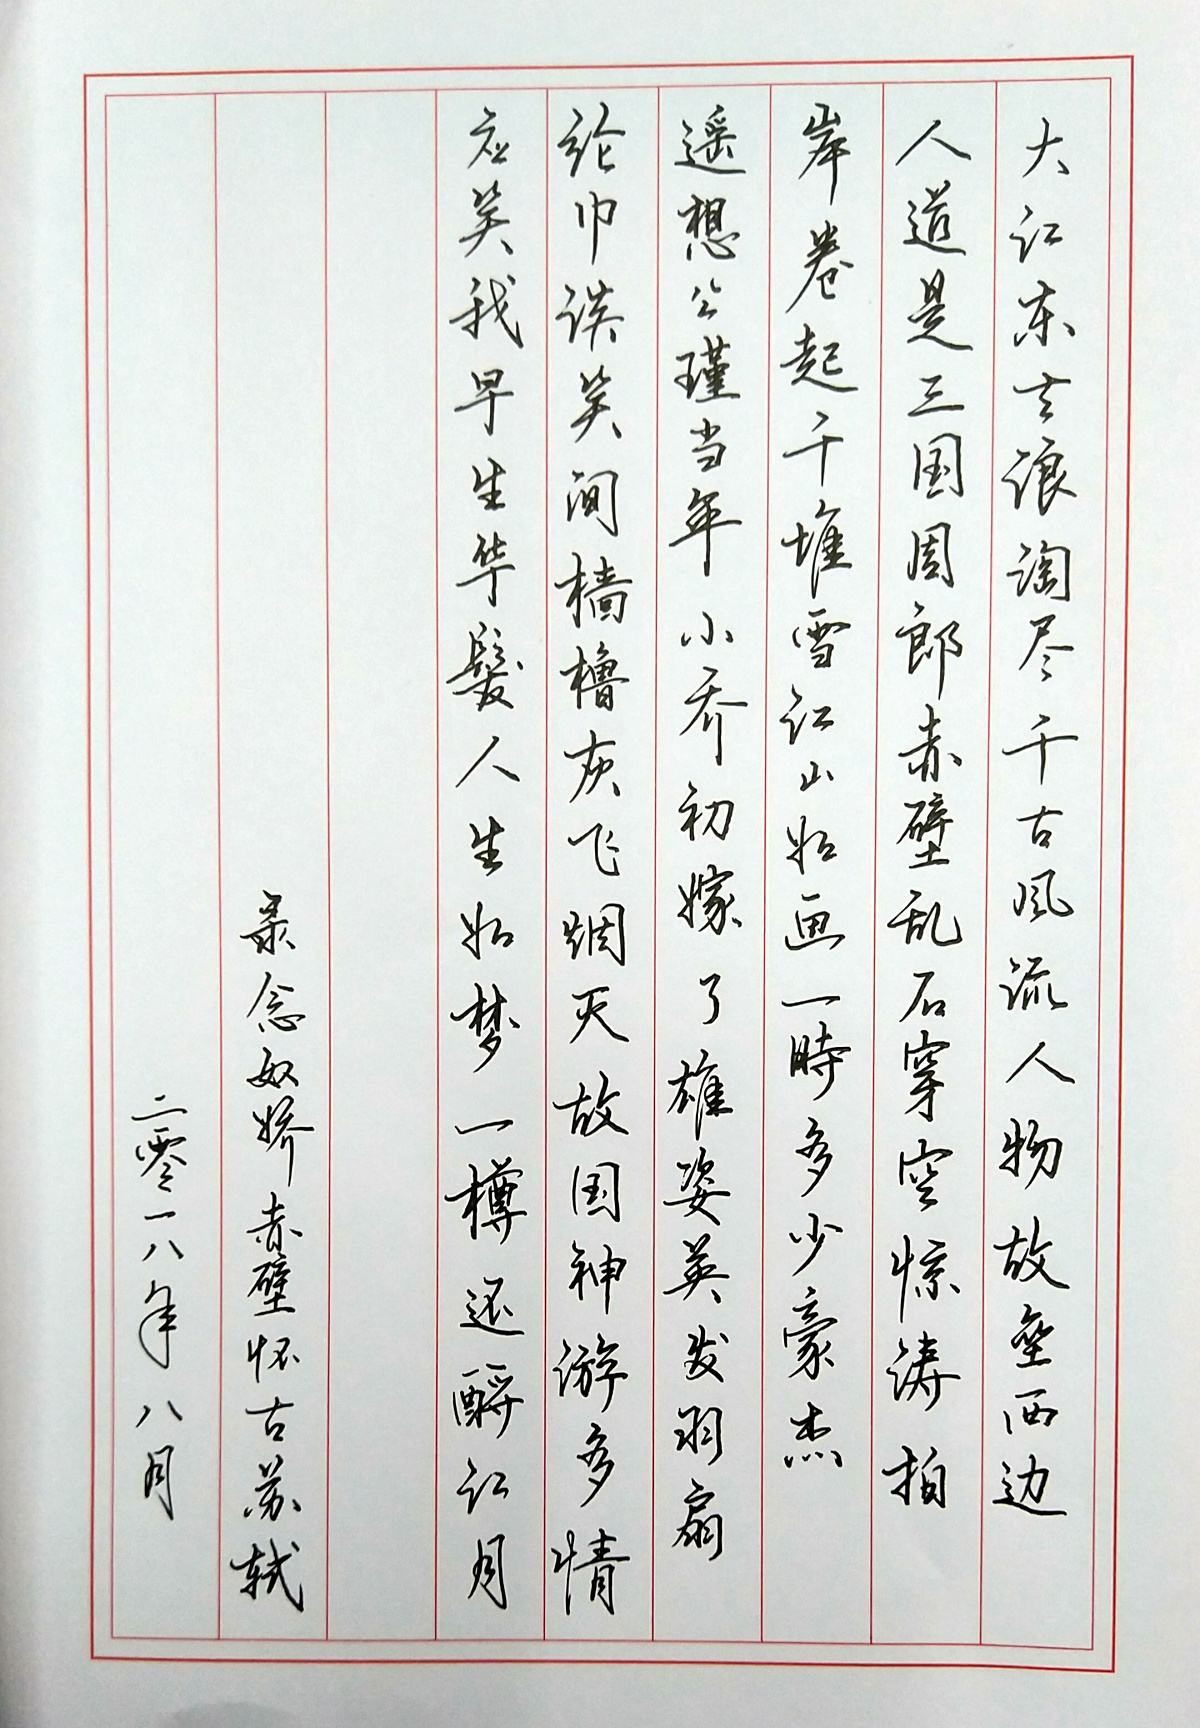 大江东去浪淘尽千古风流人物故垒西边
人道是三国周郎赤壁乱石穿空惊涛拍
岸卷起千堆雪江山如画一時多少豪杰
遥想公瑾当年小乔初嫁了雄姿英发羽扇
纶巾谈笑间樯橹灰飞烟灭故国神游多情
应笑我早生华髮人生如梦一樽还酹江月
录念奴娇赤壁怀古苏轼
二零一八年八月